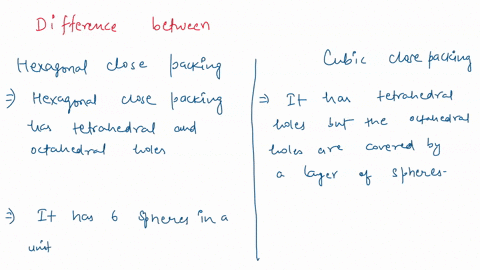 Difference between
Hexagonal close packing
⇒ Hexagonal close packing
has tetrahedral and
octahedral holes
⇒ It has 6 spheres in a
unit
Cubic close packing
⇒ It has tetrahedral
holes but the octahedral
holes are covered by
a layer of spheres-